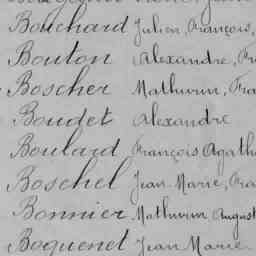 Bouchard Julien, François,
Bouton Alexandre, Fra
Boscher Mathurin, Fra
Boudet Alexandre
Boulard François Agath
Boschel Jean Marie, Fra
Bonnier Mathurin August
Boquenet Jean Marie